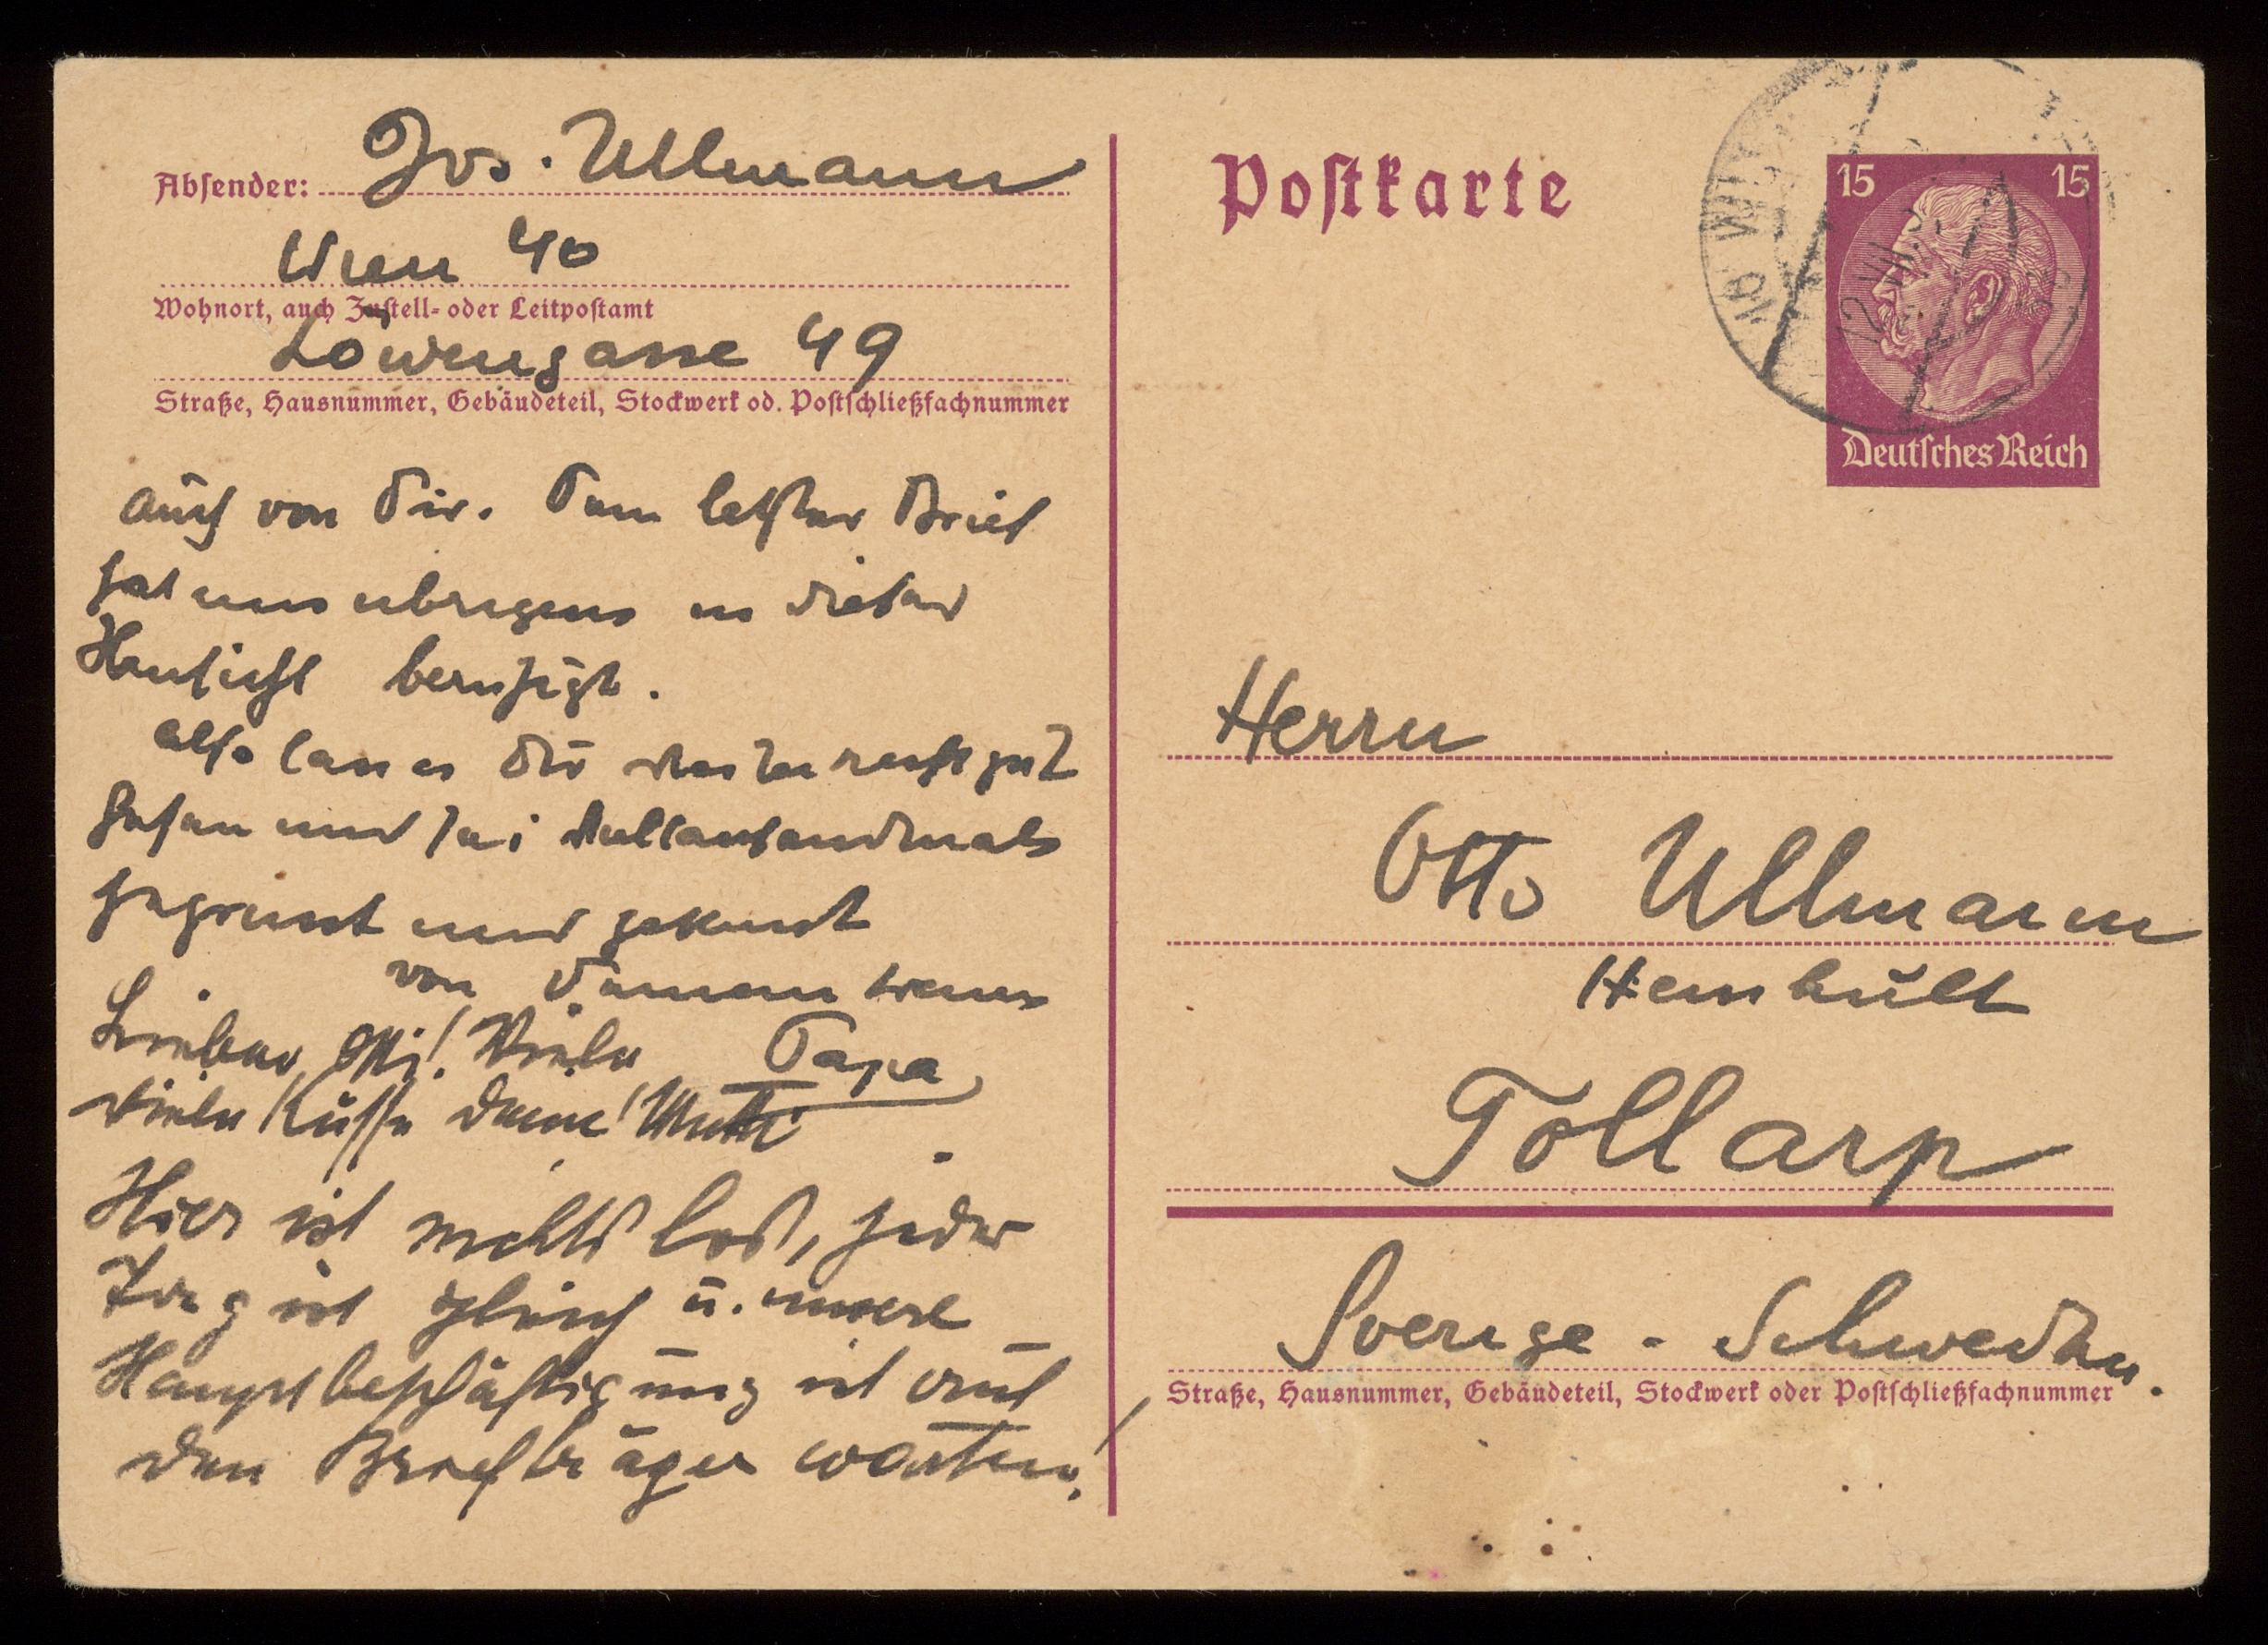 Absender: Jos. Ullmann
Wien 40
Wohnort, auch Zustell- oder Leitpostamt
Löwengasse 49
Straße, Hausnummer, Gebäudeteil, Stockwerk od. Postschließfachnummer
auch von Dir. Dein letzter Brief
hat uns übrigens in dieser
Hinsicht beruhigt.
Also lass es Dir weiter recht gut
gehen und sei vieltausendmals
gegrüsst und geküsst
von Deinem treuen
Papa
Lieber Otti! Viele
viele Küsse deine Mutti
Hier ist nichts los, jeder
Tag ist gleich u. unsere
Hauptbeschäftigung ist auf
den Briefträger warten!
Postkarte
15 15
Deutsches Reich
WIEN
12.VIII.
Herrn
Otto Ullmann
Tollarp
Sverige - Schweden.
Straße, Hausnummer, Gebäudeteil, Stockwerk oder Postschließfachnummer